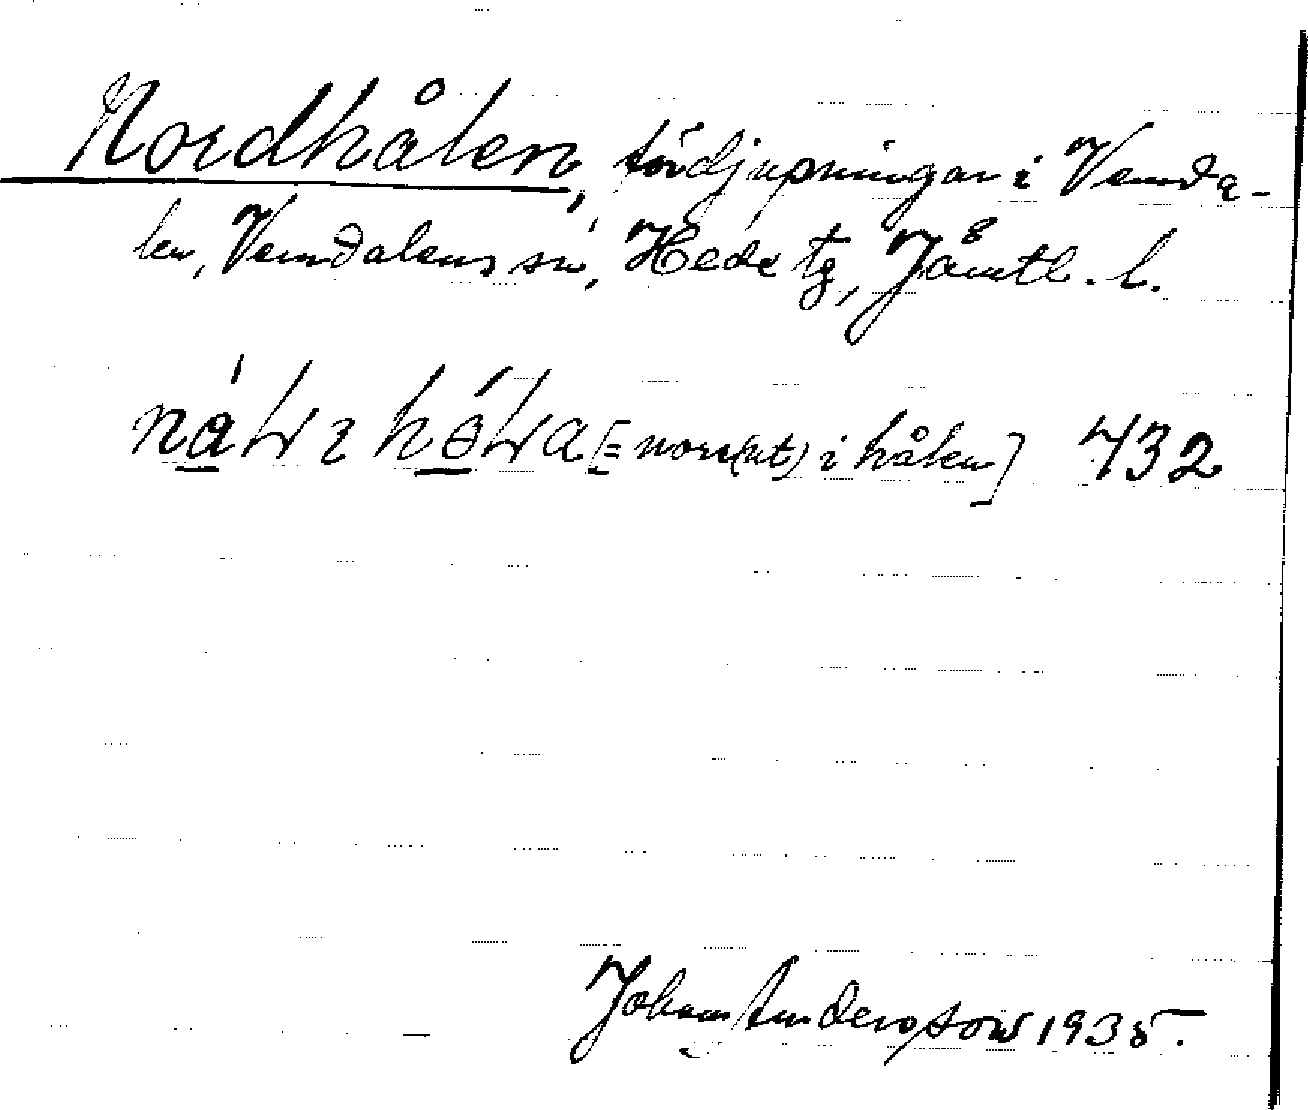 Nordhålen, fördjupningar i Vemda-
len, Vemdalens sn, Hede tg, Jämtl. l.
[= nore(ut) i hålen] 432
Johan Andersson 1935.